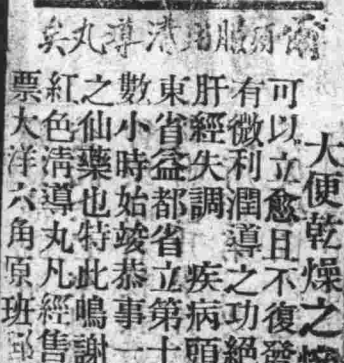 服用清導丸矣
大便乾燥之
可以立愈且不復發
有微利潤導之功絕
肝經失調 疾病頭
東省益都省立第十
數小時始竣恭事一
之仙藥也特此鳴謝
紅色清導丸凡經售
票大洋六角原班郵